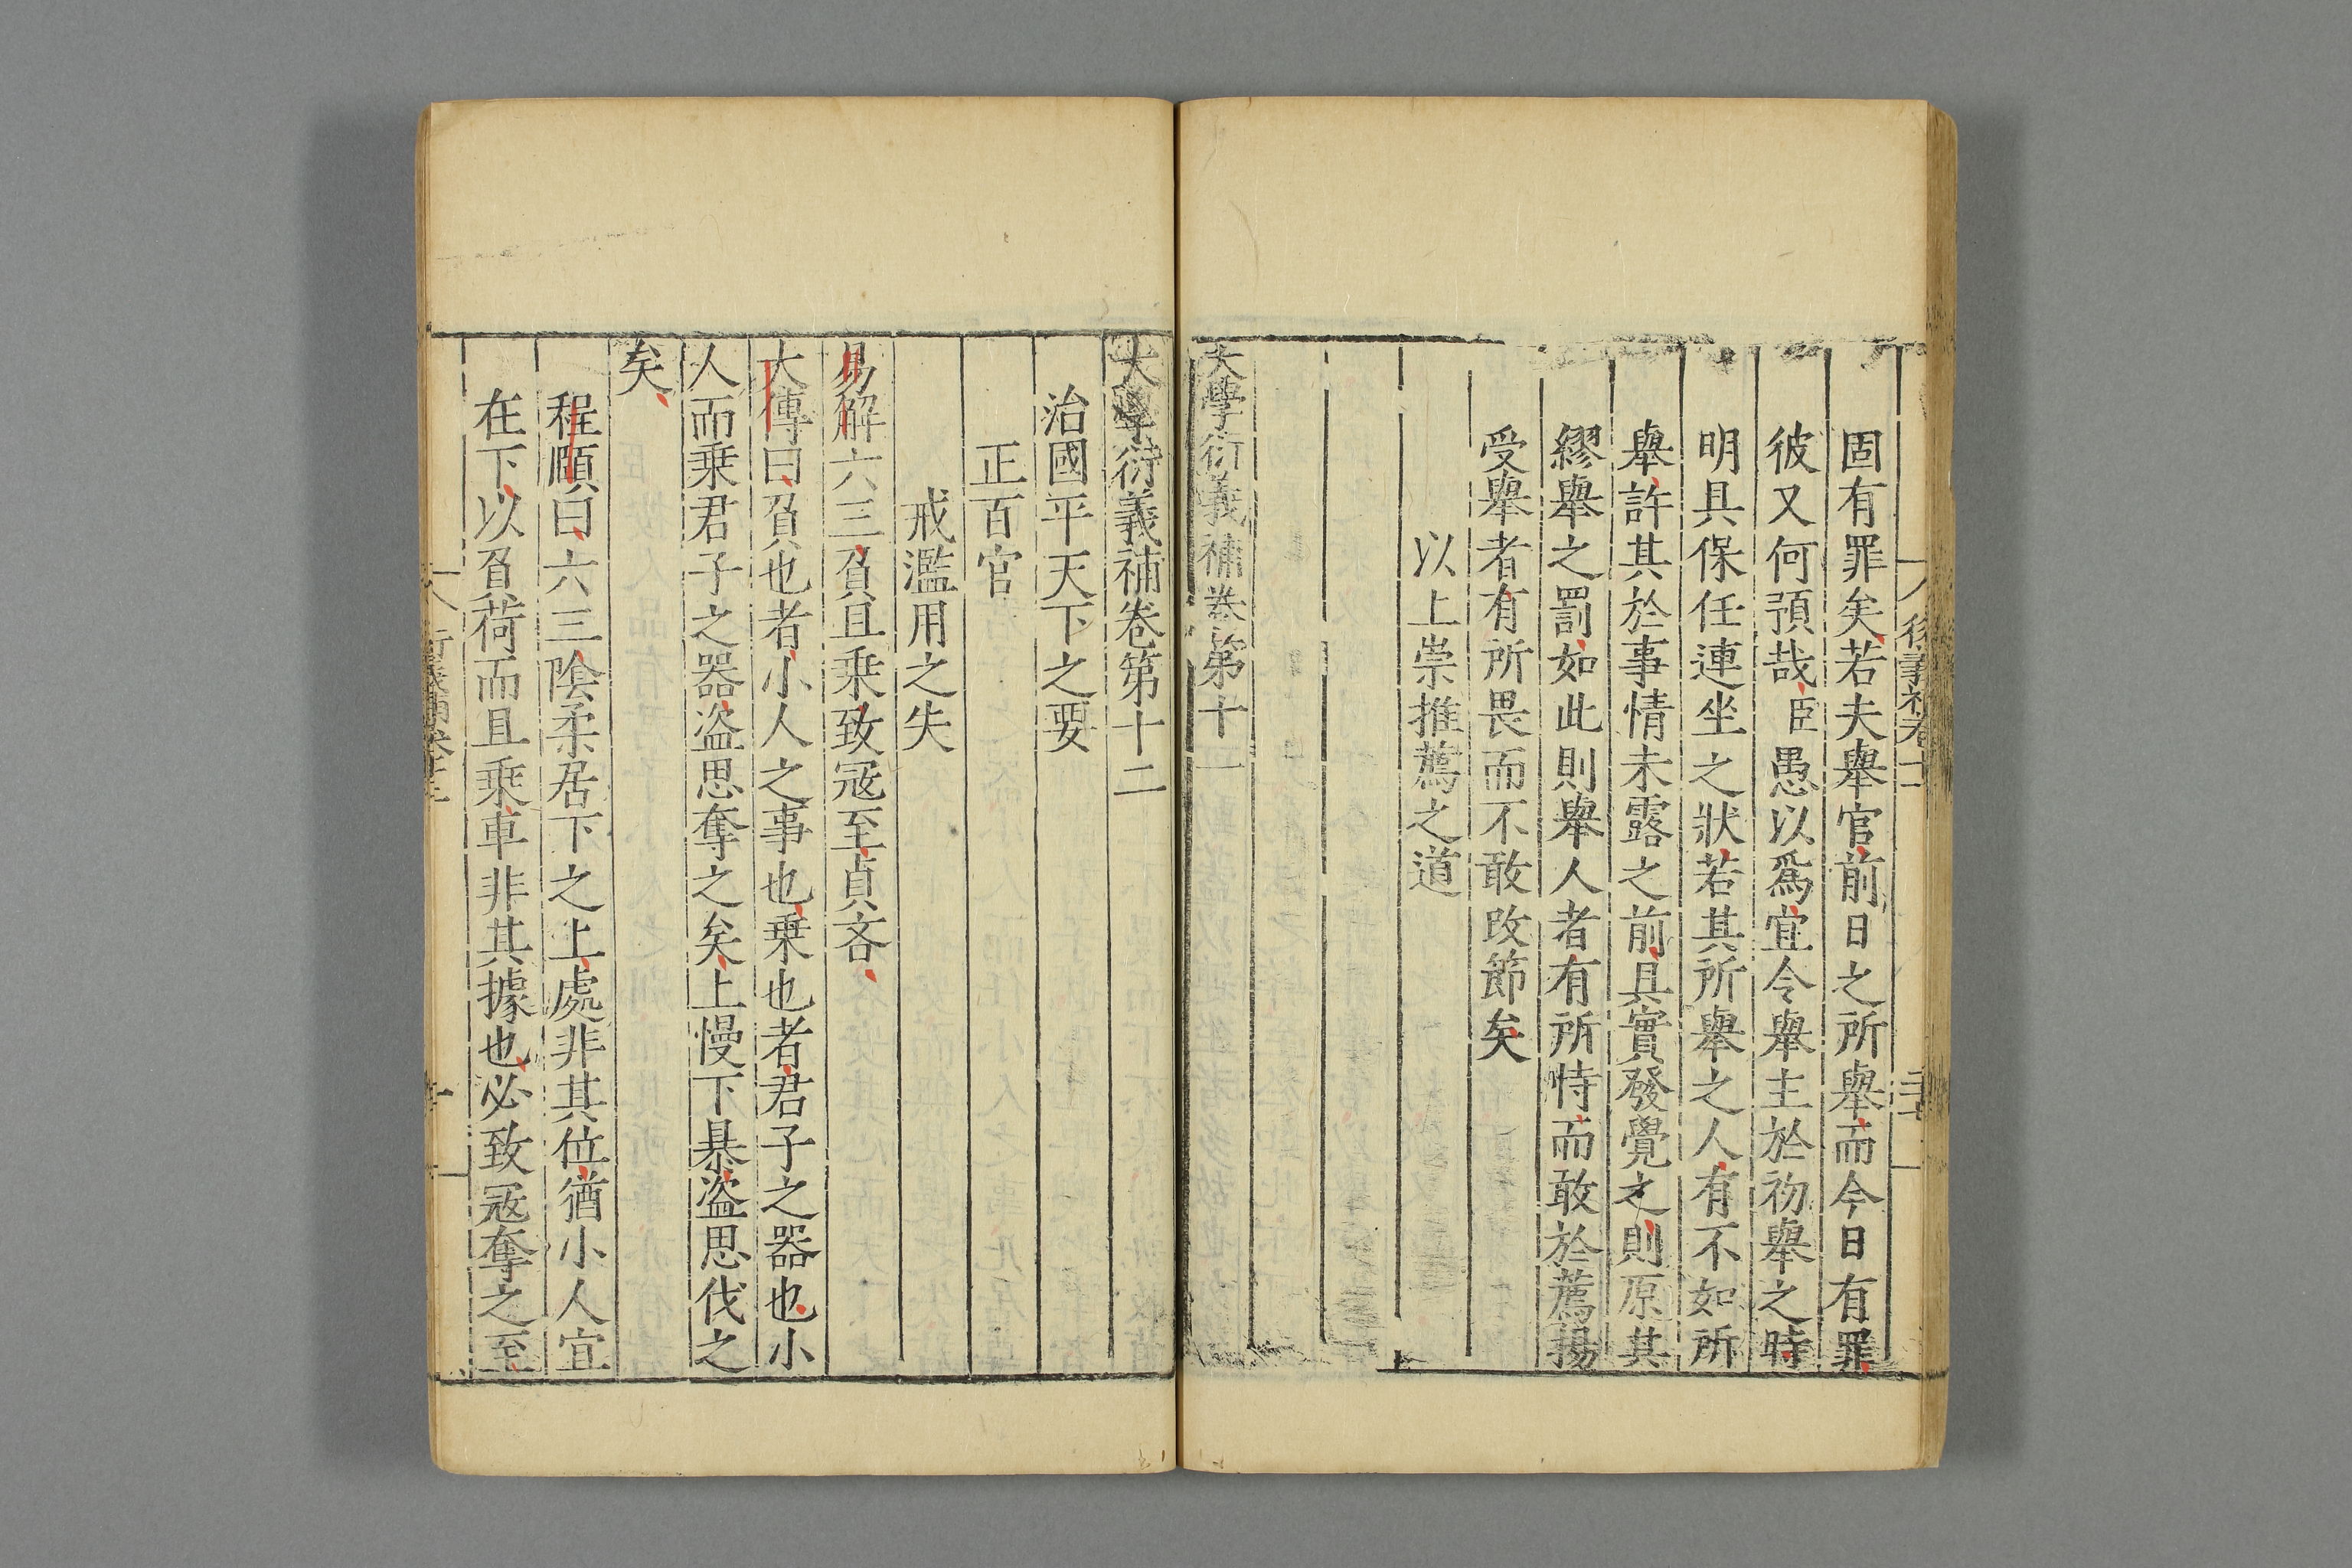 固有罪矣若夫舉官前日之所舉而今日有罪
彼又何預哉臣愚以爲宜令舉主於初舉之時
明具保任連坐之狀若其所舉之人有不如所
舉許其於事情未露之前具實發覺之則原其
繆舉之罰如此則舉人者有所恃而敢於薦揚
受舉者有所畏而不敢改節矣
以上崇推薦之道
大學衍義補卷第十一
大學衍義補卷第十二
治國平天下之要
正百官
戒濫用之失
易解六三負且乘致冦至貞吝
大傳曰負也者小人之事也乗也者君子之器也小
人而乗君子之器盗思奪之矣上慢下暴盗思伐之
矣
程頤曰六三陰柔居下之上處非其位猶小人宜
在下以負荷而且乗車非其據也必致冦奪之至